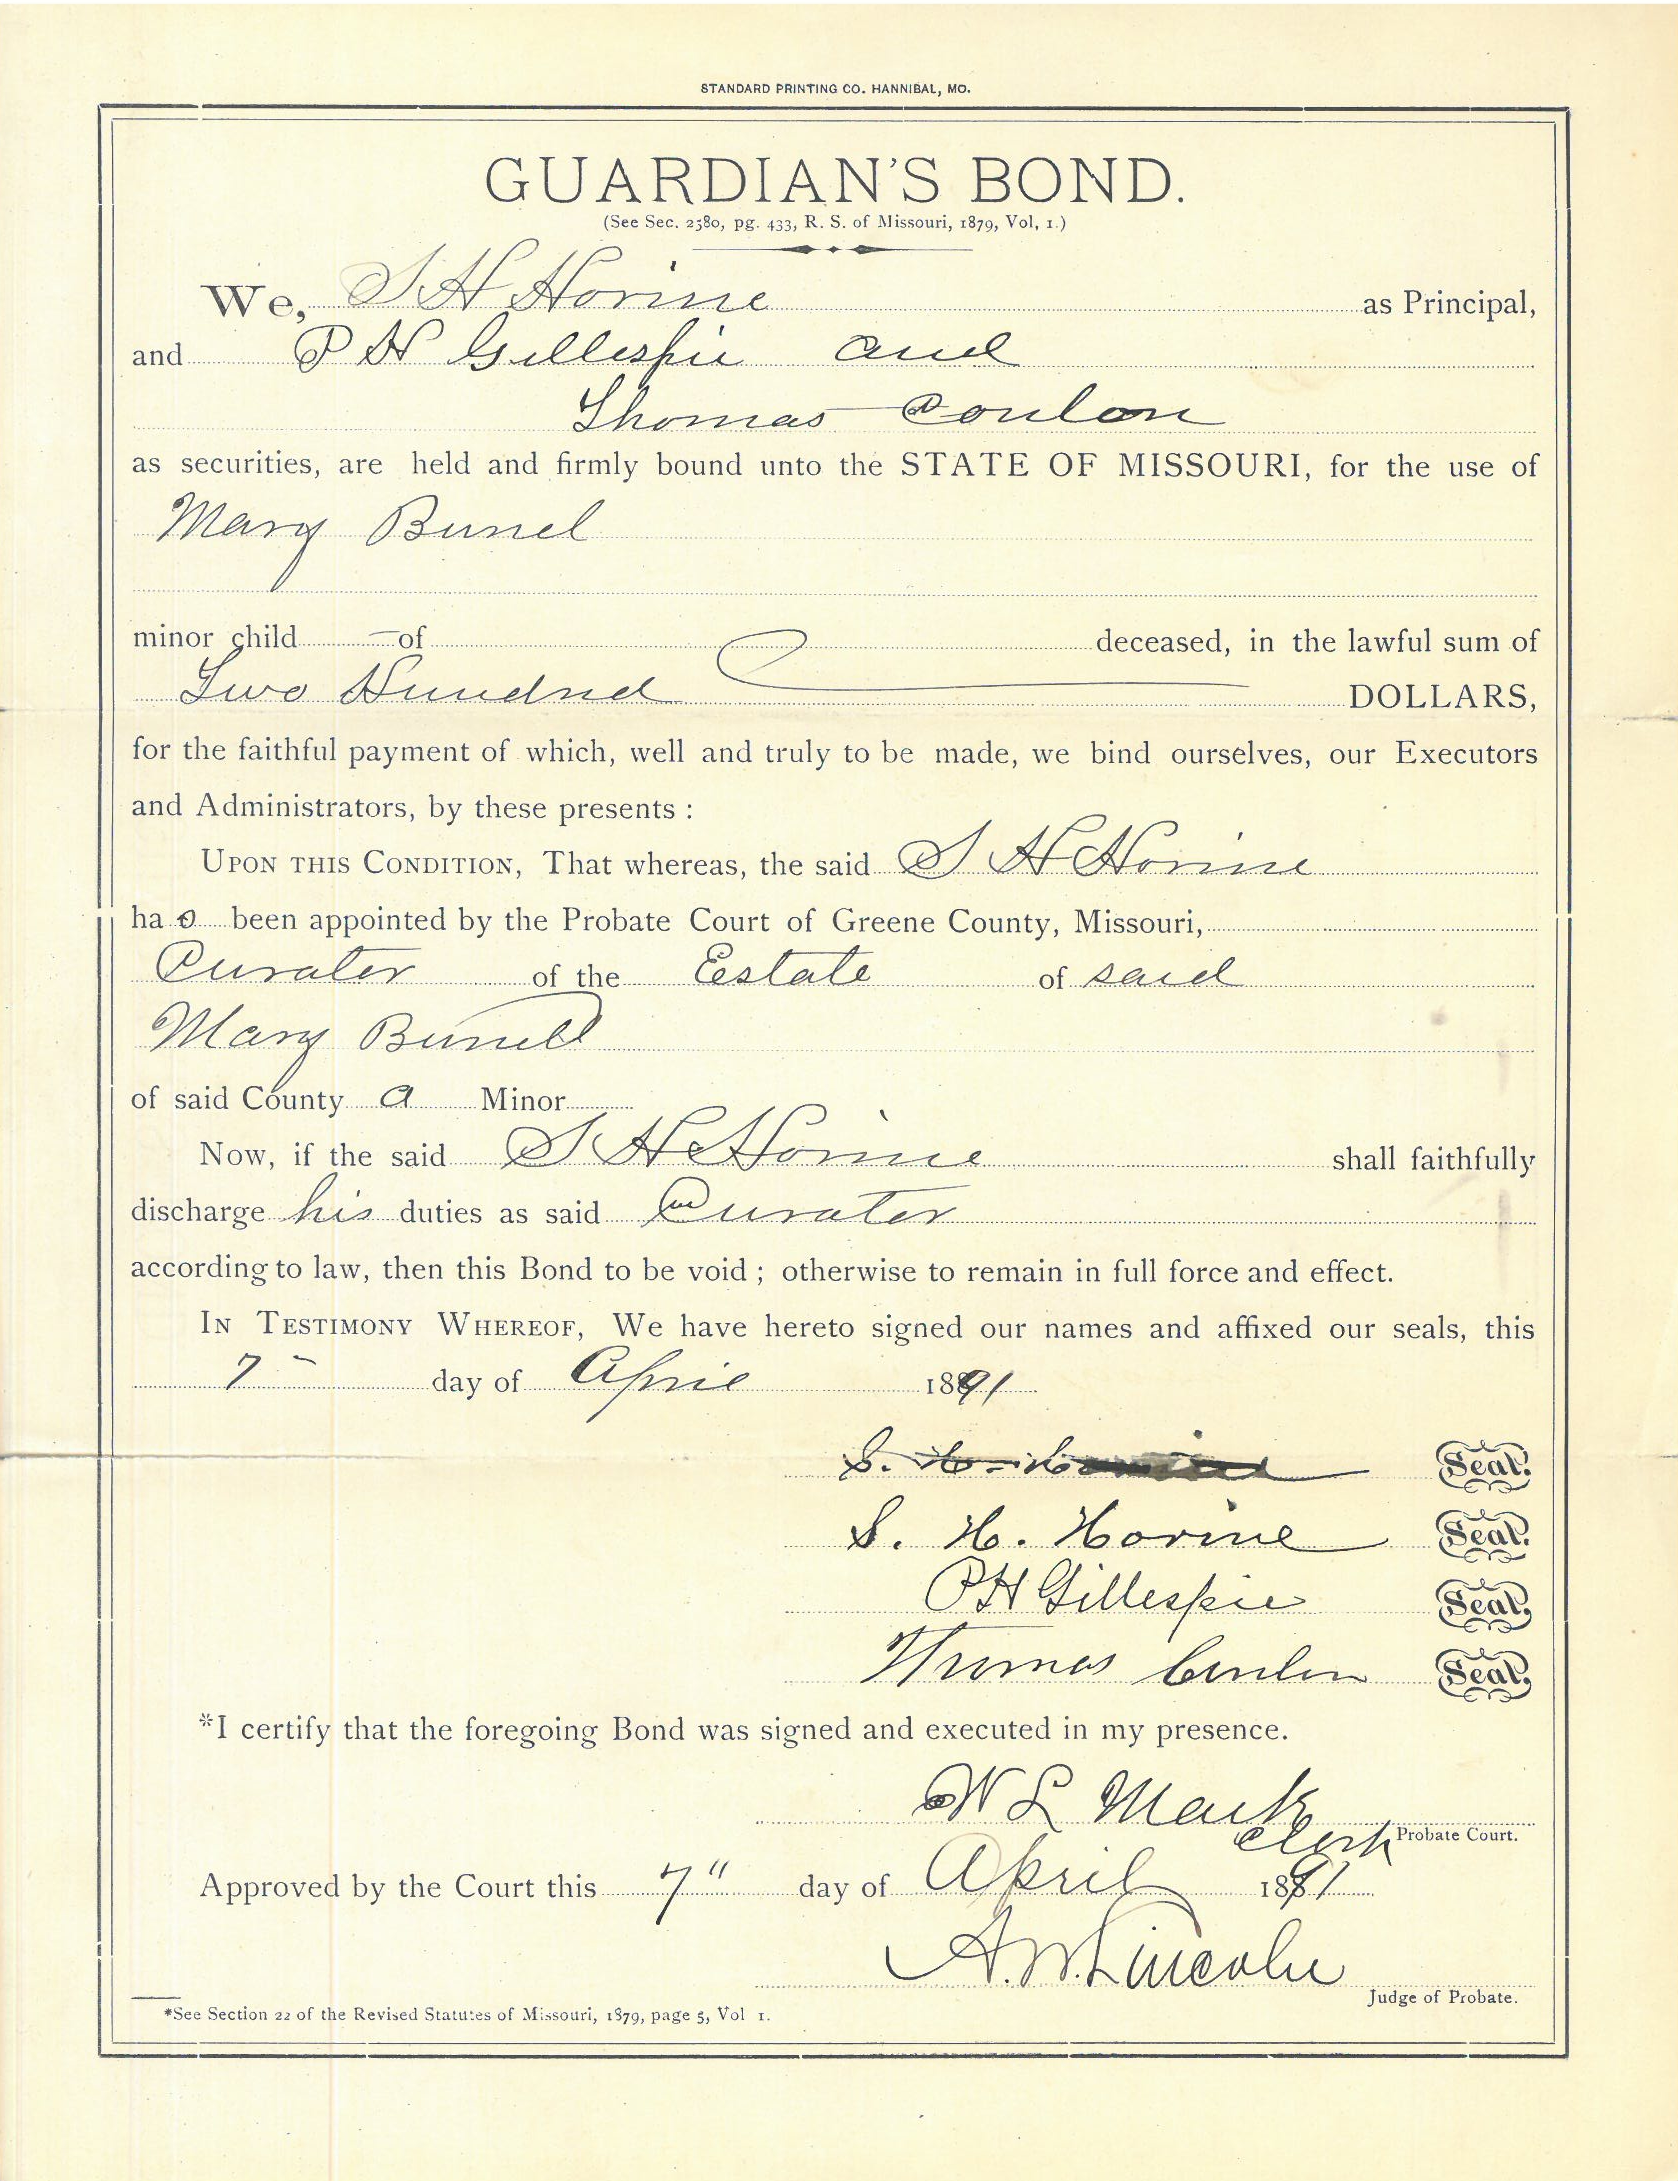 STANDARD PRINTING CO. HANNIBAL, MO.
GUARDIAN'S BOND.
(See Sec. 2580, pg. 433, R. S. of Missouri, 1879, Vol, 1.)
We, S H Horine as Principal,
and P H Gillespie and
Thomas Conlon
as securities, are held and firmly bound unto the STATE OF MISSOURI, for the use of
Mary Bunel
minor child of deceased, in the lawful sum of
Two Hundred DOLLARS,
for the faithful payment of which, well and truly to be made, we bind ourselves, our Executors
and Administrators, by these presents :
UPON THIS CONDITION, That whereas, the said S H Horine
has been appointed by the Probate Court of Greene County, Missouri,
Curater of the Estate of said
Mary Bunell
of said County a Minor
Now, if the said S H Horine shall faithfully
discharge his duties as said Curater
according to law, then this Bond to be void ; otherwise to remain in full force and effect.
IN TESTIMONY WHEREOF, We have hereto signed our names and affixed our seals, this
7 day of April 1891
S. H. Seal.
S. H. Horine Seal.
PH Gillespie Seal.
Thomas Conlon Seal.
*I certify that the foregoing Bond was signed and executed in my presence.
W L Mack
Clerk Probate Court.
Approved by the Court this 7" day of April 1891
A. W. Lincoln
Judge of Probate.
*See Section 22 of the Revised Statutes of Missouri, 1879, page 5, Vol 1.